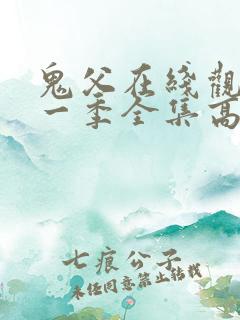 鬼父在綫觀
一季全集高
七痕公子
未经同意禁止转载